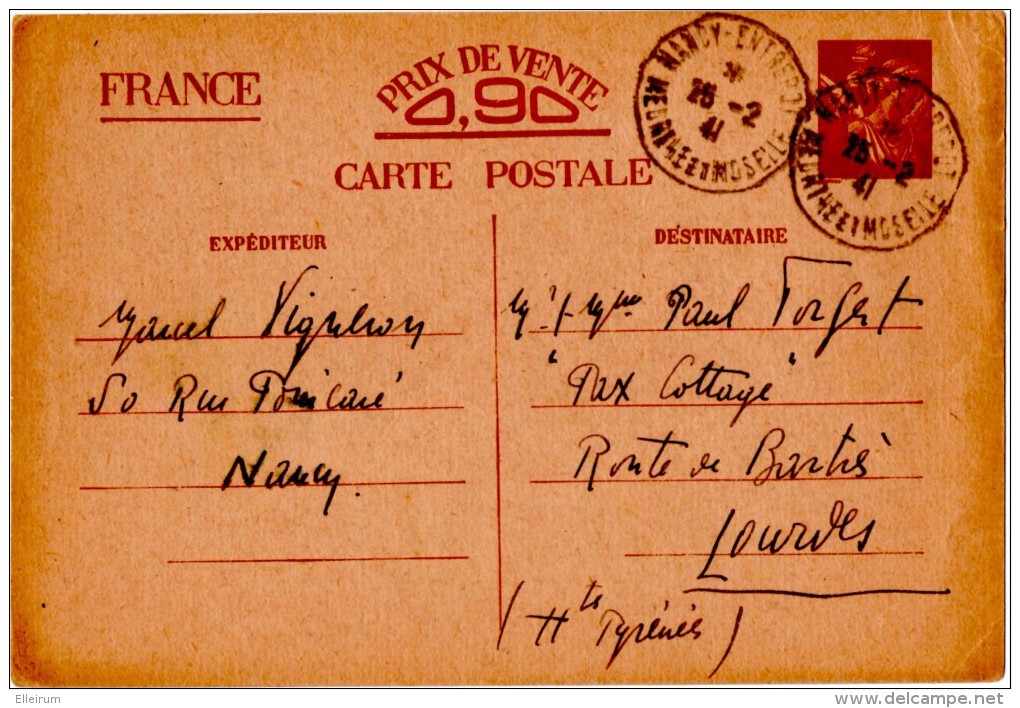 FRANCE
PRIX DE VENTE
0,90
CARTE POSTALE
NANCY-ENTREPOT
25 -2
41
MEURTHE ET MOSELLE
NANCY-ENTREPOT
25 -2
41
MEURTHE ET MOSELLE
EXPÉDITEUR
Marcel Vigneron
50 Rue Poincaré
Nancy.
DESTINATAIRE
Mr & Mme Paul Forget
"Pax Cottage"
Route de Bartrès
Lourdes
(Htes Pyrénées)
Elleirum
www.delcampe.net